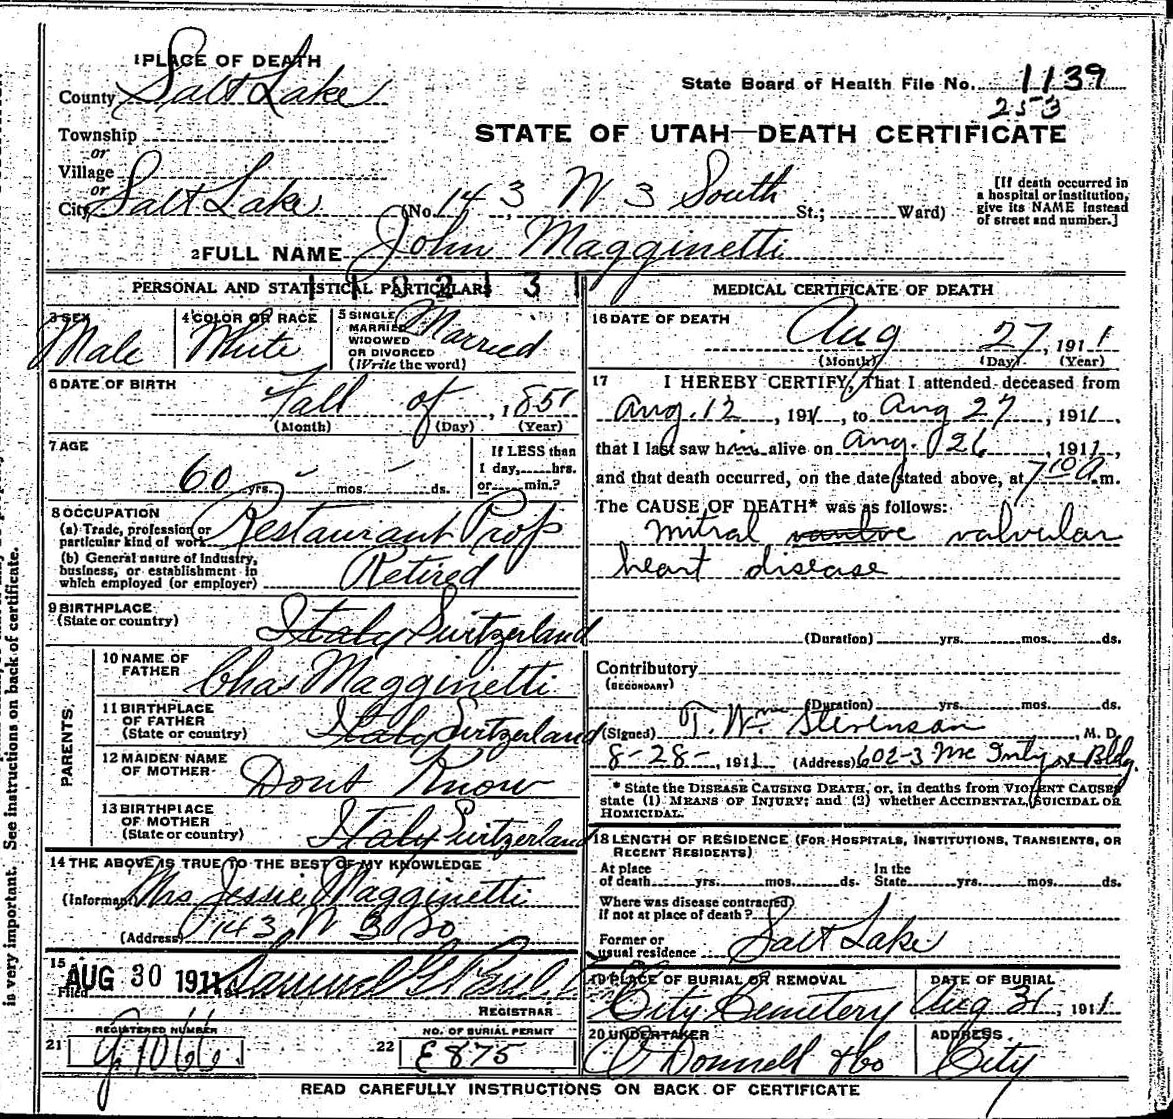 1 PLACE OF DEATH
County Salt Lake
State Board of Health File No. 1139
253
Township
or
Village
or
STATE OF UTAH—DEATH CERTIFICATE
City Salt Lake (No. 143, W 3 South St.; Ward)
[If death occurred in
a hospital or institution,
give its NAME instead
of street and number.]
2 FULL NAME John Magginetti
PERSONAL AND STATISTICAL PARTICULARS
3 SEX Male
4 COLOR OR RACE White
5 SINGLE
MARRIED
WIDOWED
OR DIVORCED
(Write the word) Married
6 DATE OF BIRTH
Fall of, 1851
(Month) (Day) (Year)
7 AGE
60 yrs. - mos. - ds.
If LESS than
1 day, hrs.
or min.?
8 OCCUPATION
(a) Trade, profession or
particular kind of work Restaurant Prop
(b) General nature of industry,
business, or establishment in
which employed (or employer) Retired
9 BIRTHPLACE
(State or country) Italy Switzerland
PARENTS
10 NAME OF
FATHER Chas Magginetti
11 BIRTHPLACE
OF FATHER
(State or country) Italy Switzerland
12 MAIDEN NAME
OF MOTHER Dont Know
13 BIRTHPLACE
OF MOTHER
(State or country) Italy Switzerland
14 THE ABOVE IS TRUE TO THE BEST OF MY KNOWLEDGE
(Informant) Mrs Jessie Magginetti
(Address) 143 W 3 So
15
Filed AUG 30 1911 Samuel G. Paul
REGISTRAR
21 REGISTERED NUMBER
22 NO. OF BURIAL PERMIT
E875
MEDICAL CERTIFICATE OF DEATH
16 DATE OF DEATH
Aug 27, 1911
(Month) (Day) (Year)
17 I HEREBY CERTIFY, That I attended deceased from
Aug. 12, 1911, to Aug 27, 1911,
that I last saw him alive on Aug. 26 1911,
and that death occurred, on the date stated above, at 7 10 a.m.
The CAUSE OF DEATH* was as follows:
mitral valvular
heart disease
(Duration) yrs. mos. ds.
Contributory
(SECONDARY)
(Duration) yrs. mos. ds.
(Signed) T. Wm Stevenson, M.D.
8-28-, 1911 (Address) 602-3 McIntyre Bldg.
* State the DISEASE CAUSING DEATH, or, in deaths from VIOLENT CAUSES
state (1) MEANS OF INJURY; and (2) whether ACCIDENTAL, SUICIDAL OR
HOMICIDAL.
18 LENGTH OF RESIDENCE (FOR HOSPITALS, INSTITUTIONS, TRANSIENTS, OR
RECENT RESIDENTS)
At place
of death yrs. mos. ds.
In the
State yrs. mos. ds.
Where was disease contracted
if not at place of death?
Former or
usual residence Salt Lake
19 PLACE OF BURIAL OR REMOVAL
City Cemetery
DATE OF BURIAL
Aug 31, 1911
20 UNDERTAKER
O'Donnell & Co
ADDRESS
City
READ CAREFULLY INSTRUCTIONS ON BACK OF CERTIFICATE
is very important. See instructions on back of certificate.